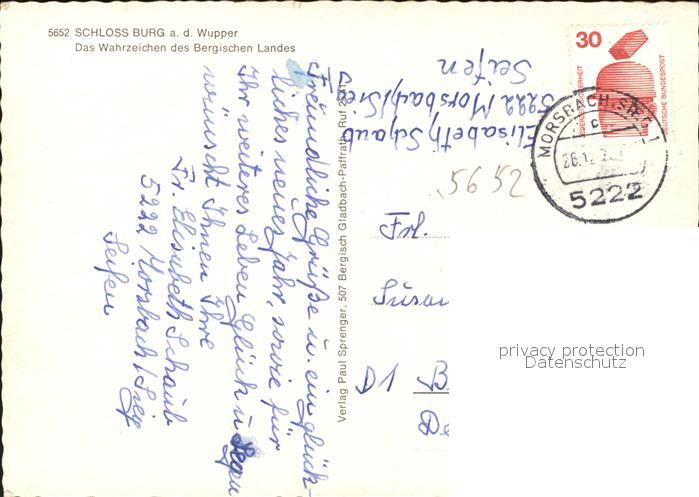 5652 SCHLOSS BURG a. d. Wupper
Das Wahrzeichen des Bergischen Landes
Freundliche Grüße u. ein glück-
liches neues Jahr, sowie für
Ihr weiteres Leben Glück u. Segen
wünscht Ihnen Ihre
Fr. Elisabeth Schaub
5222 Morsbach/Sieg
Seifen
Verlag Paul Sprenger, 507 Bergisch Gladbach-Paffrath, Ruf
Elisabeth Schaub
5222 Morsbach/Sieg
Seifen
30
DEUTSCHE BUNDESPOST
MORSBACH, SIEG 1
c
5222
5652
Frl.
Susan
D1 B
De
privacy protection
Datenschutz